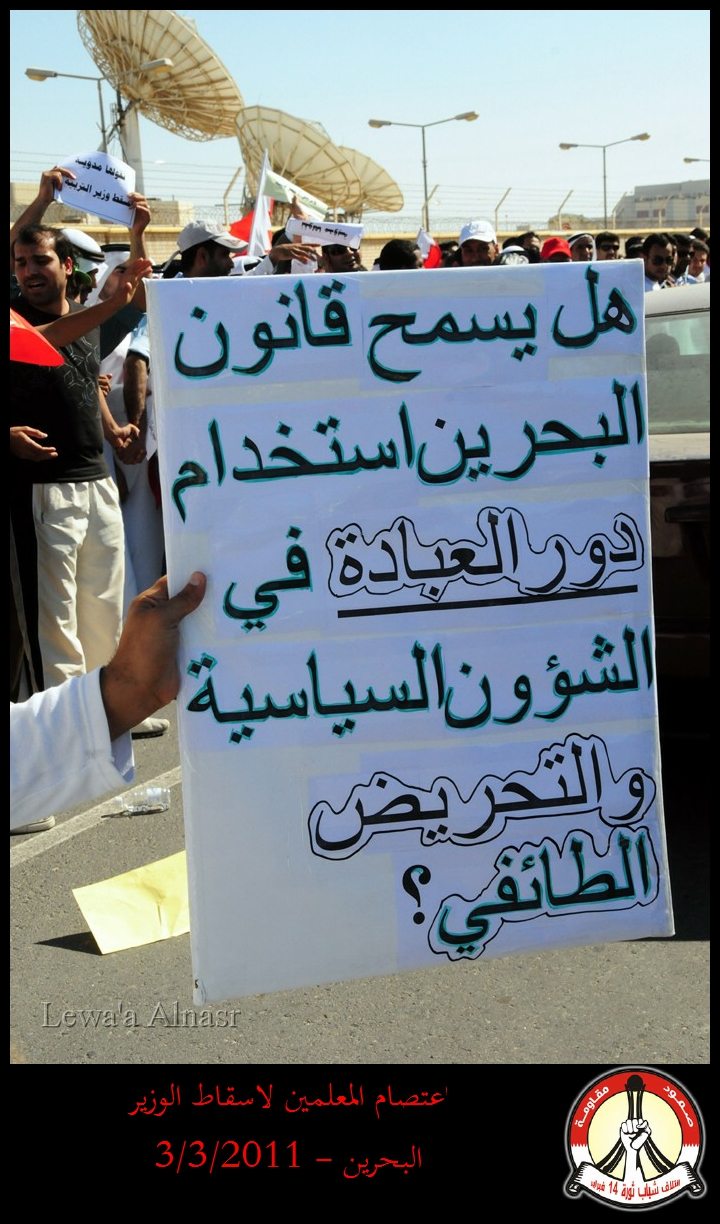 نقولها مدوية
يسقط وزير التربية
هل يسمح قانون
البحرين استخدام
دور العبادة في
الشؤون السياسية
والتحريض
الطائفي؟
Lewa'a Alnasr
اعتصام المعلمين لاسقاط الوزير
البحرين – 3/3/2011
صمود مقاومة
ائتلاف شباب ثورة 14 فبراير